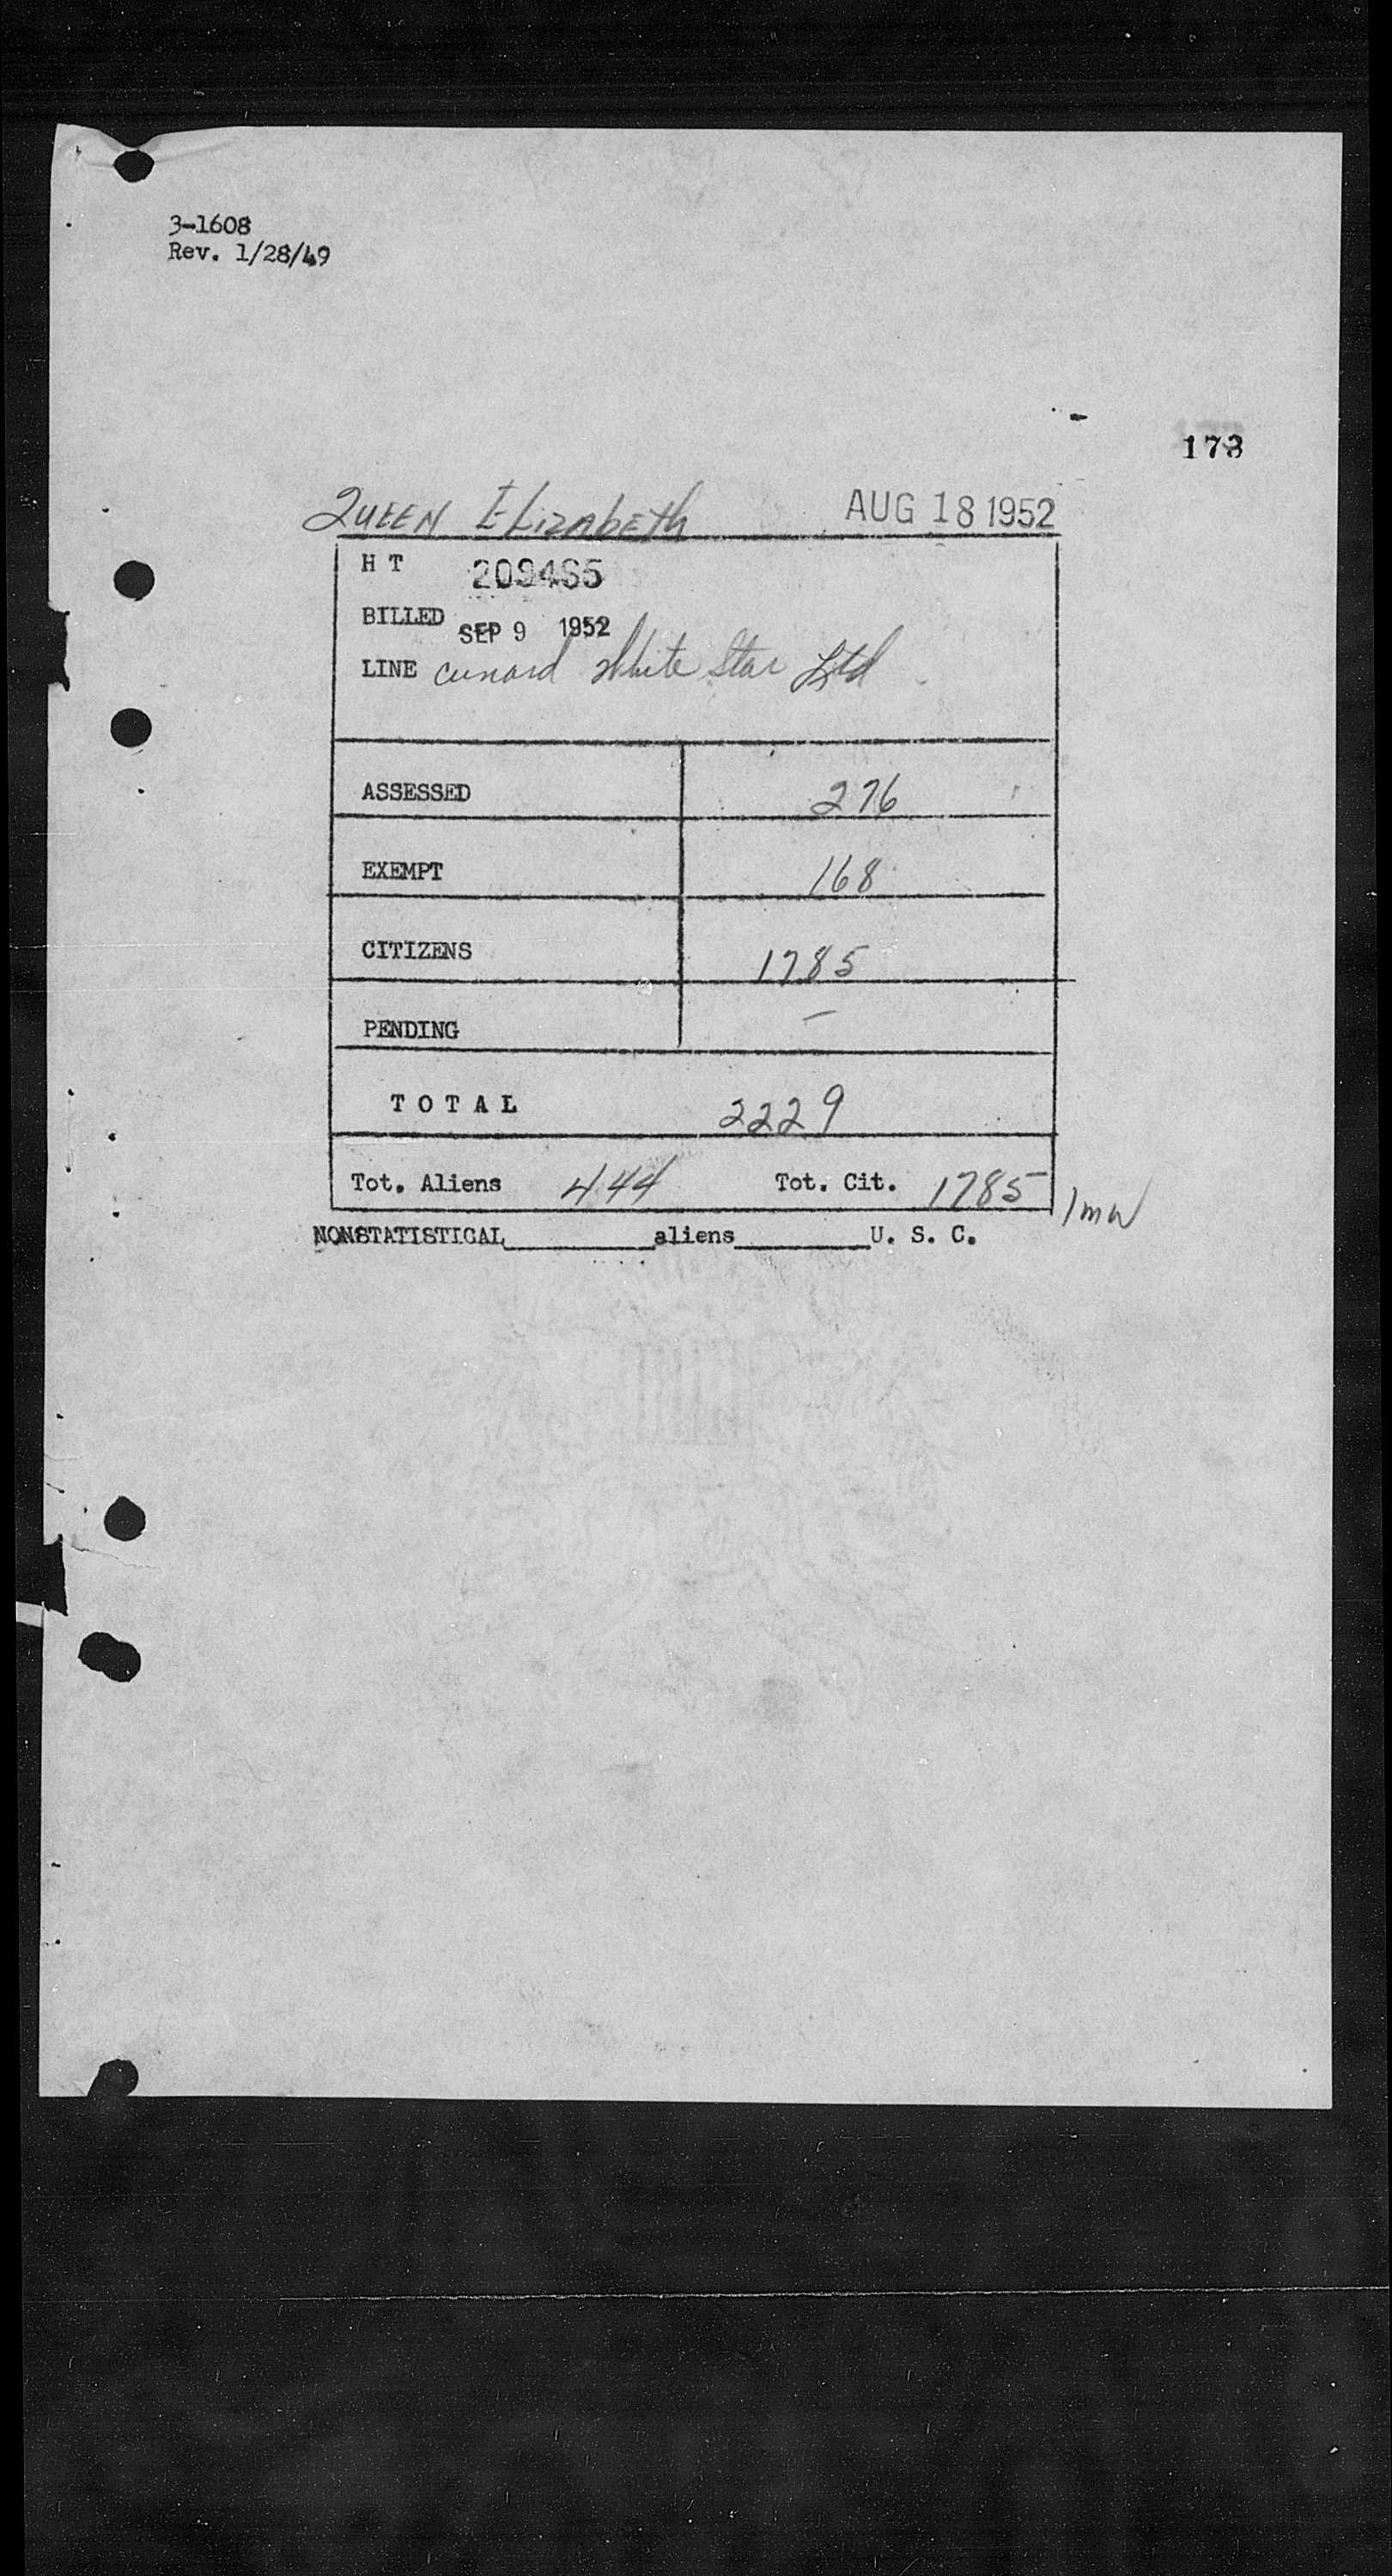 3-1608
Rev. 1/28/49
173
QUEEN ELizAbETh AUG 18 1952
H T 209465
BILLED SEP 9 1952
LINE Cunard White Star Ltd
ASSESSED 276
EXEMPT 168
CITIZENS 1785
PENDING –
T O T A L 2229
Tot. Aliens 444 Tot. Cit. 1785 /mw
NONSTATISTICAL__________aliens_________U. S. C.